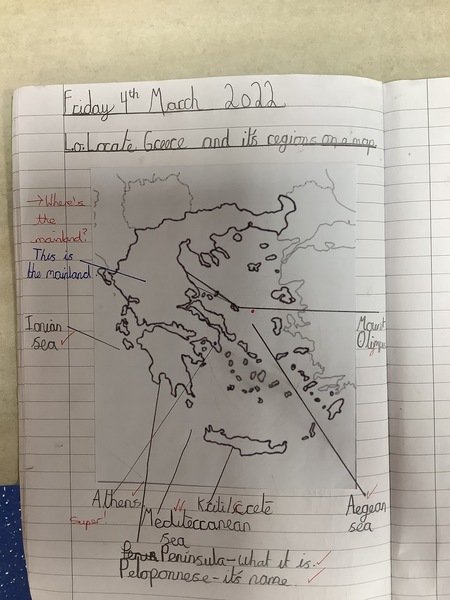 Friday 4th March 2022
Lo: Locate Greece and it's regions on a map.
→ Where's
the
mainland?
This is
the mainland
Ionian
sea
Mount
Athens
Super!
Kriti/crete
Aegean
sea
Mediteccanean
sea
Peninsula - what it is.
Peloponnese - it's name.